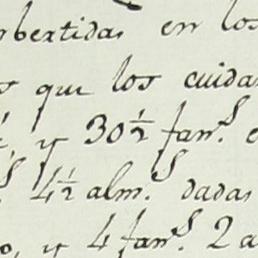 nbertidas en los
s que los cuida
, y 30½ fan.s
s 4½ alm.s dadas
o, y 4 fan.s 2 a